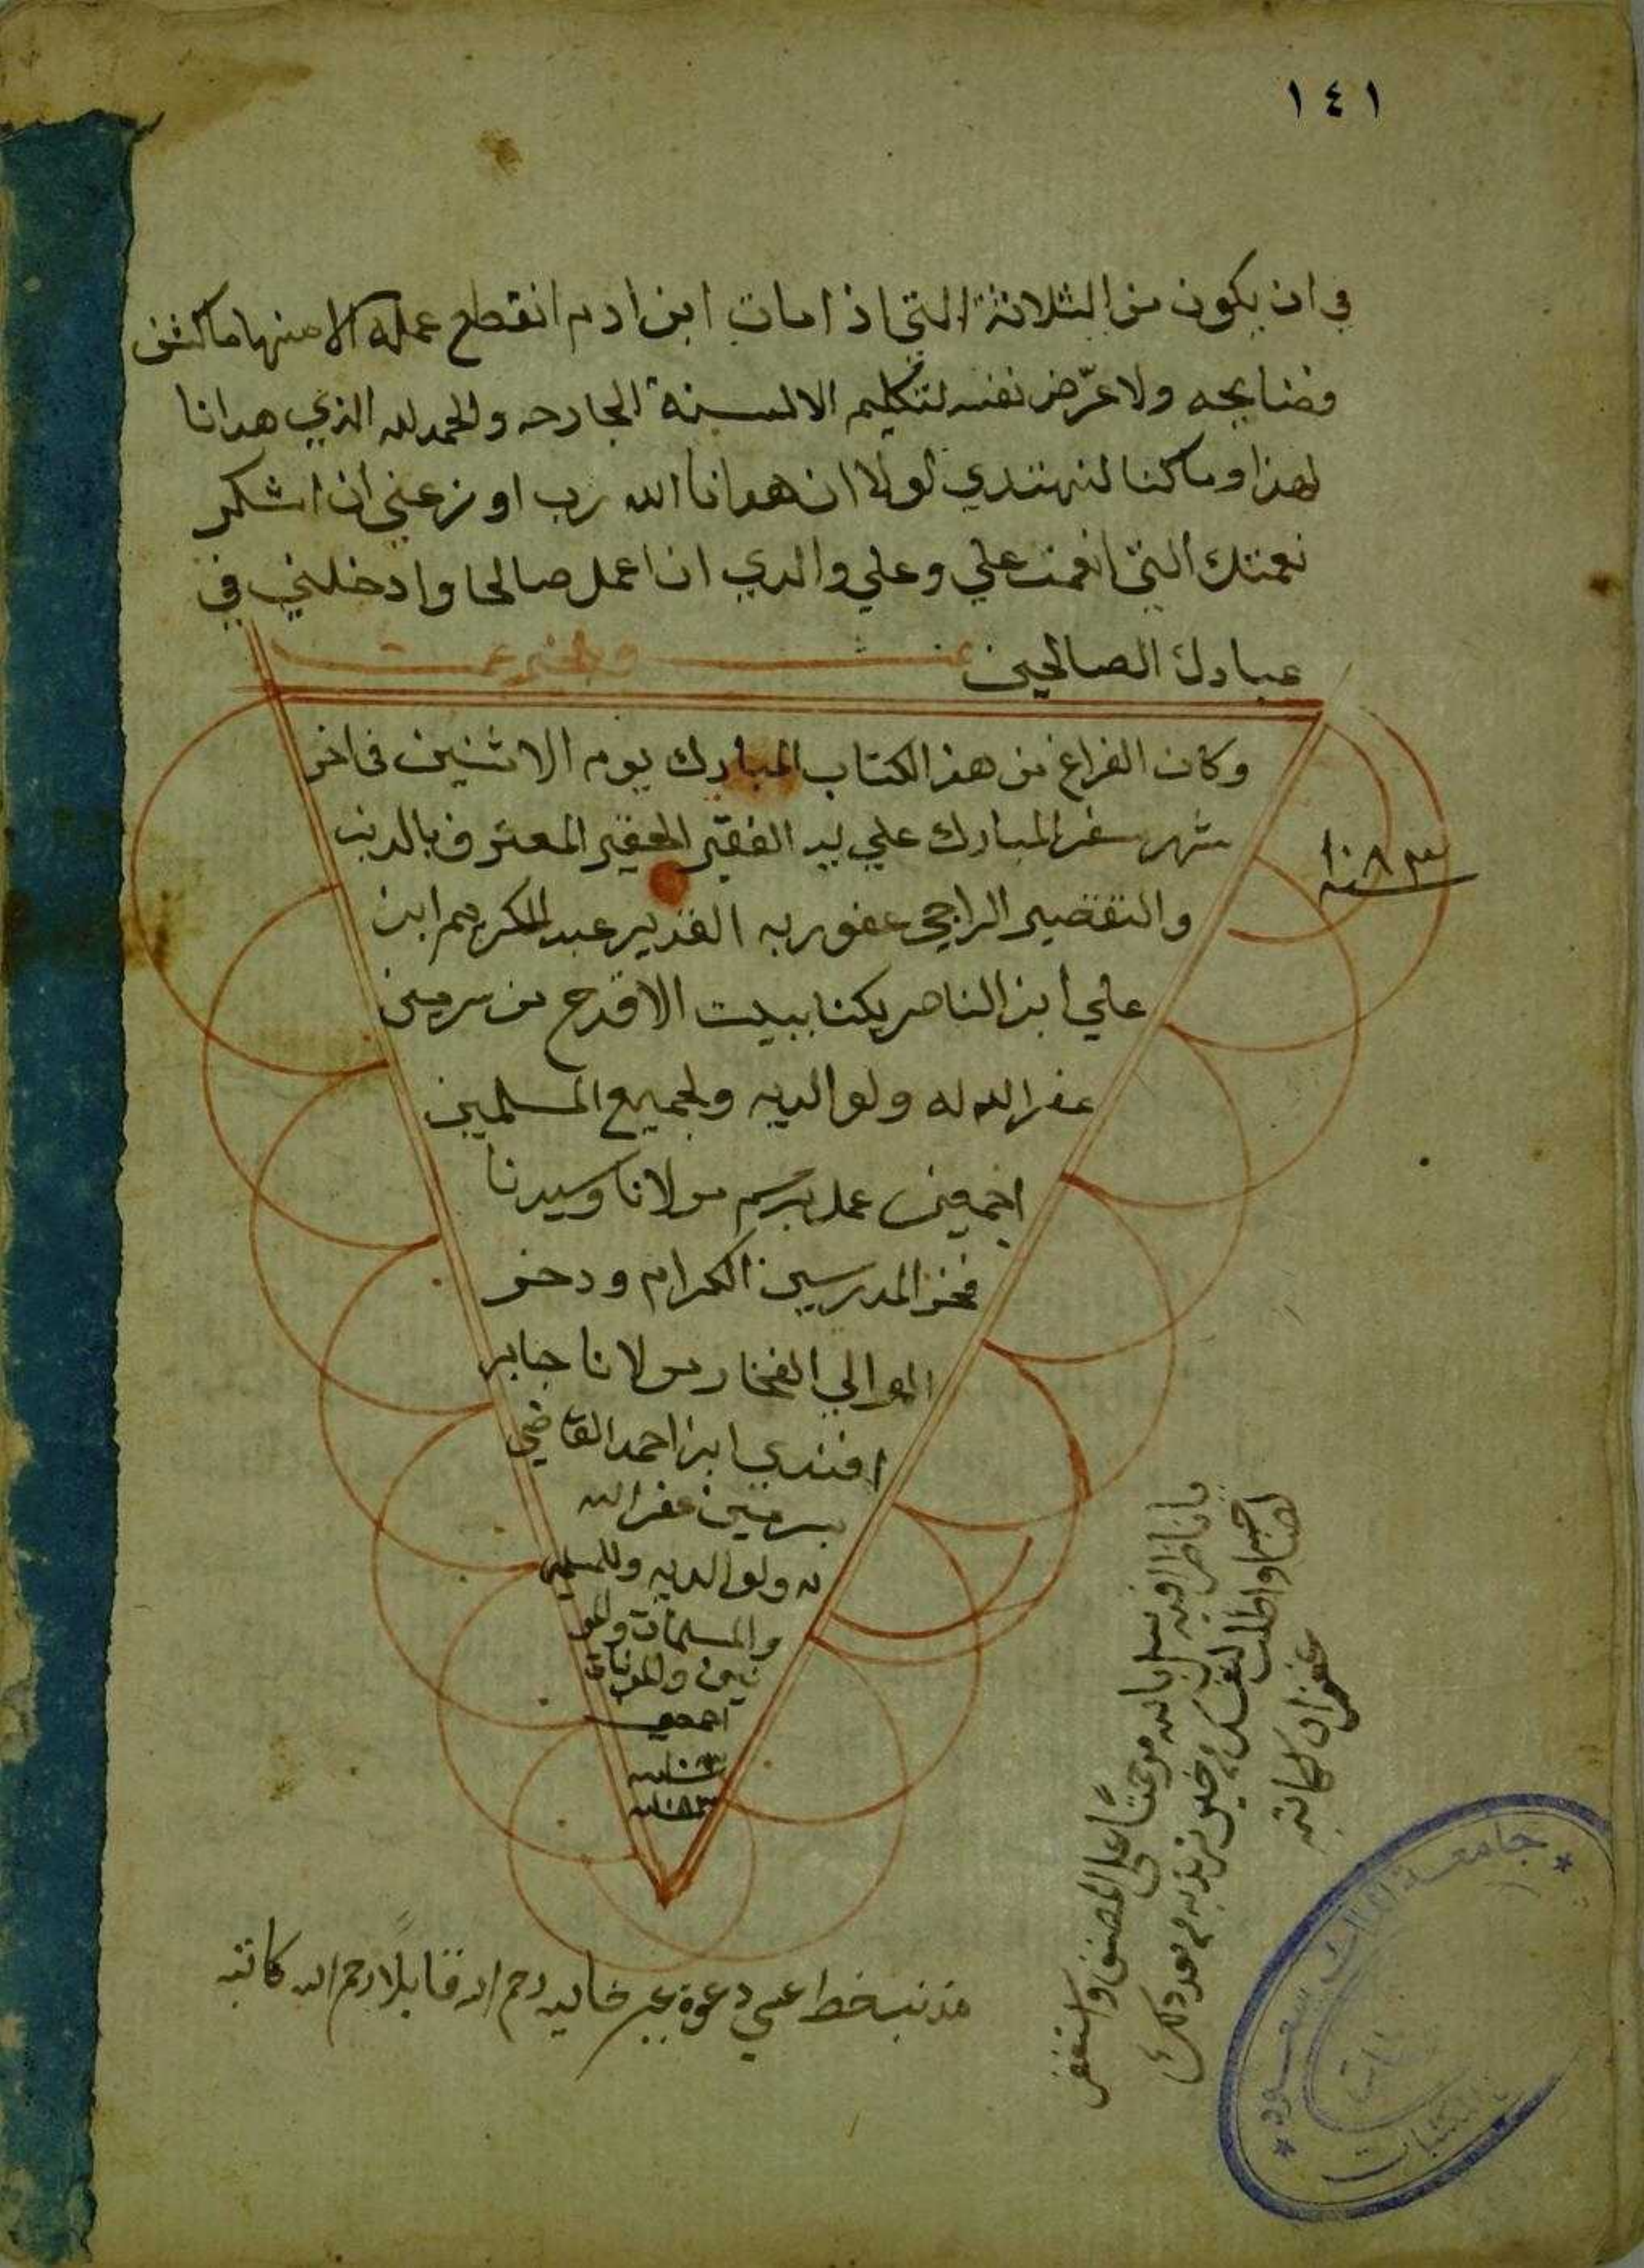 ١٤١
في ان يكون من الثلاثة التي اذا مات ابن ادم انقطع عمله الا منها ما كشف
فضايحه ولا عرّض نفسه لتكليم الالسنة الجارحه والحمد لله الذي هدانا
لهذا وما كنا لنهتدي لولا ان هدانا الله رب اوزعني ان اشكر
نعمتك التي انعمت علي وعلي والدي ان اعمل صالحا وادخلني في
عبادك الصالحين
وكان الفراغ من هذا الكتاب المبارك يوم الاثنين في اخر
شهر سفر المبارك علي يد الفقير الحقير المعترف بالذنب
والتقصير الراجي عفو ربه القدير عبد الكريم ابن
علي ابن الناصر يكنا ببيت الاقرع من سرمين
غفر الله له ولوالديه ولجميع المسلمين
اجمعين عمل برسم مولانا وسيدنا
فخر المدرسين الكرام ودخر
الموالي الفخار مولانا جابر
افندي ابن احمد القاضي
بسرمين غفر الله
له ولوالديه وللمسلمين
والمسلمات والمو
نين والمونات
اجمعين
سنة
١٠٨٣
سنة ١٠٨٣
يا ناظرا فيه سل بالله مرحمتًا على المصنف واستغفر
لصاحبه واطلب لنفسك من خير تريد به من بعد ذلك
غفرانا لكاتبه
مذنب خط عسي دعوة خاليه رحم الله قايلا رحم الله كاتبه
جامعة الملك سعود
المكتبات